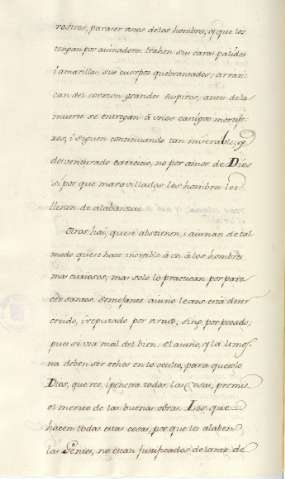 rostros, para ser vistos de los hombres, y que los
tengan por ayunadores. trahen sus caras palidas
i amarillas sus cuerpos quebrantados; arran-
can del corazon grandes suspiros, antes de la
muerte se entregan à unos castigos mortifi-
xes, i siguen continuando tan miserable, y
desventurado exercicio, no por amor de Dios
si por que maravillados los hombres los
llenen de alabanzas.
Otros hai, que se abstienen, i ayunan de tal
modo que se hace increible à los hombres
mas curiosos; mas solo lo practican por pare-
cer santos. Semejante ayuno le ano està deste
creido, i reputado por virtud, sino por pecado;
pues usa mal del bien. el ayuno, y la limos-
na deben ser echos en lo oculto, para que solo
Dios, que ve, i penetra todas las cosas, premie
el merito de las buenas obras. Los que
hacen todas estas cosas, por que los alaben
las Gentes, no estan justificados delante de